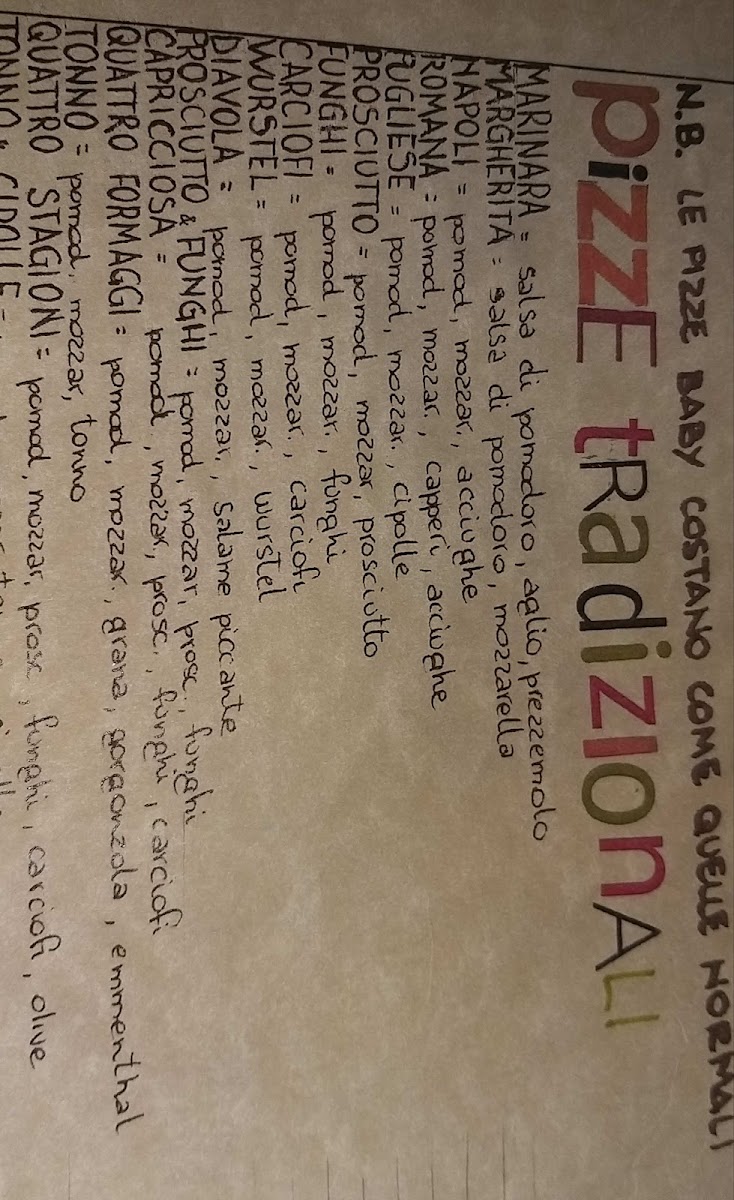 N.B. LE PIZZE BABY COSTANO COME QUELLE NORMALI
PiZZE tRadiZIOnALI
MARINARA = salsa di pomodoro, aglio, prezzemolo
MARGHERITA = salsa di pomodoro, mozzarella
NAPOLI = pomod, mozzar., acciughe
ROMANA = pomod, mozzar., capperi, acciughe
PUGLIESE = pomod, mozzar., cipolle
PROSCIUTTO = pomod, mozzar, prosciutto
FUNGHI = pomod, mozzar., funghi
CARCIOFI = pomod, mozzar., carciofi
WURSTEL = pomod, mozzar., wurstel
DIAVOLA = pomod, mozzar., salame piccante
PROSCIUTTO & FUNGHI = pomod, mozzar, prosc., funghi
CAPRICCIOSA = pomod, mozzar, prosc., funghi, carciofi
QUATTRO FORMAGGI = pomod, mozzar., grana, gorgonzola, emmenthal
TONNO = pomod, mozzar, tonno
QUATTRO STAGIONI = pomod, mozzar, prosc, funghi, carciofi, olive
TONNO & CIPOLLE =